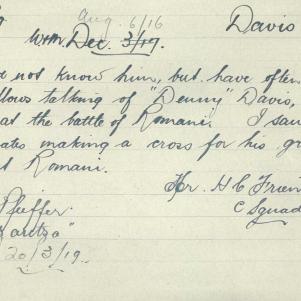 Aug. 6/16 Davis
W+M. Dec. 3/17.
not know him, but have often
llows talking of "Denny" Davis,
at the battle of Romani. I saw
ates making a cross for his gr
t Romani.
Tpr. H C Frien
Pfeiffer. C Squad
"Karitza"
20/3/19.